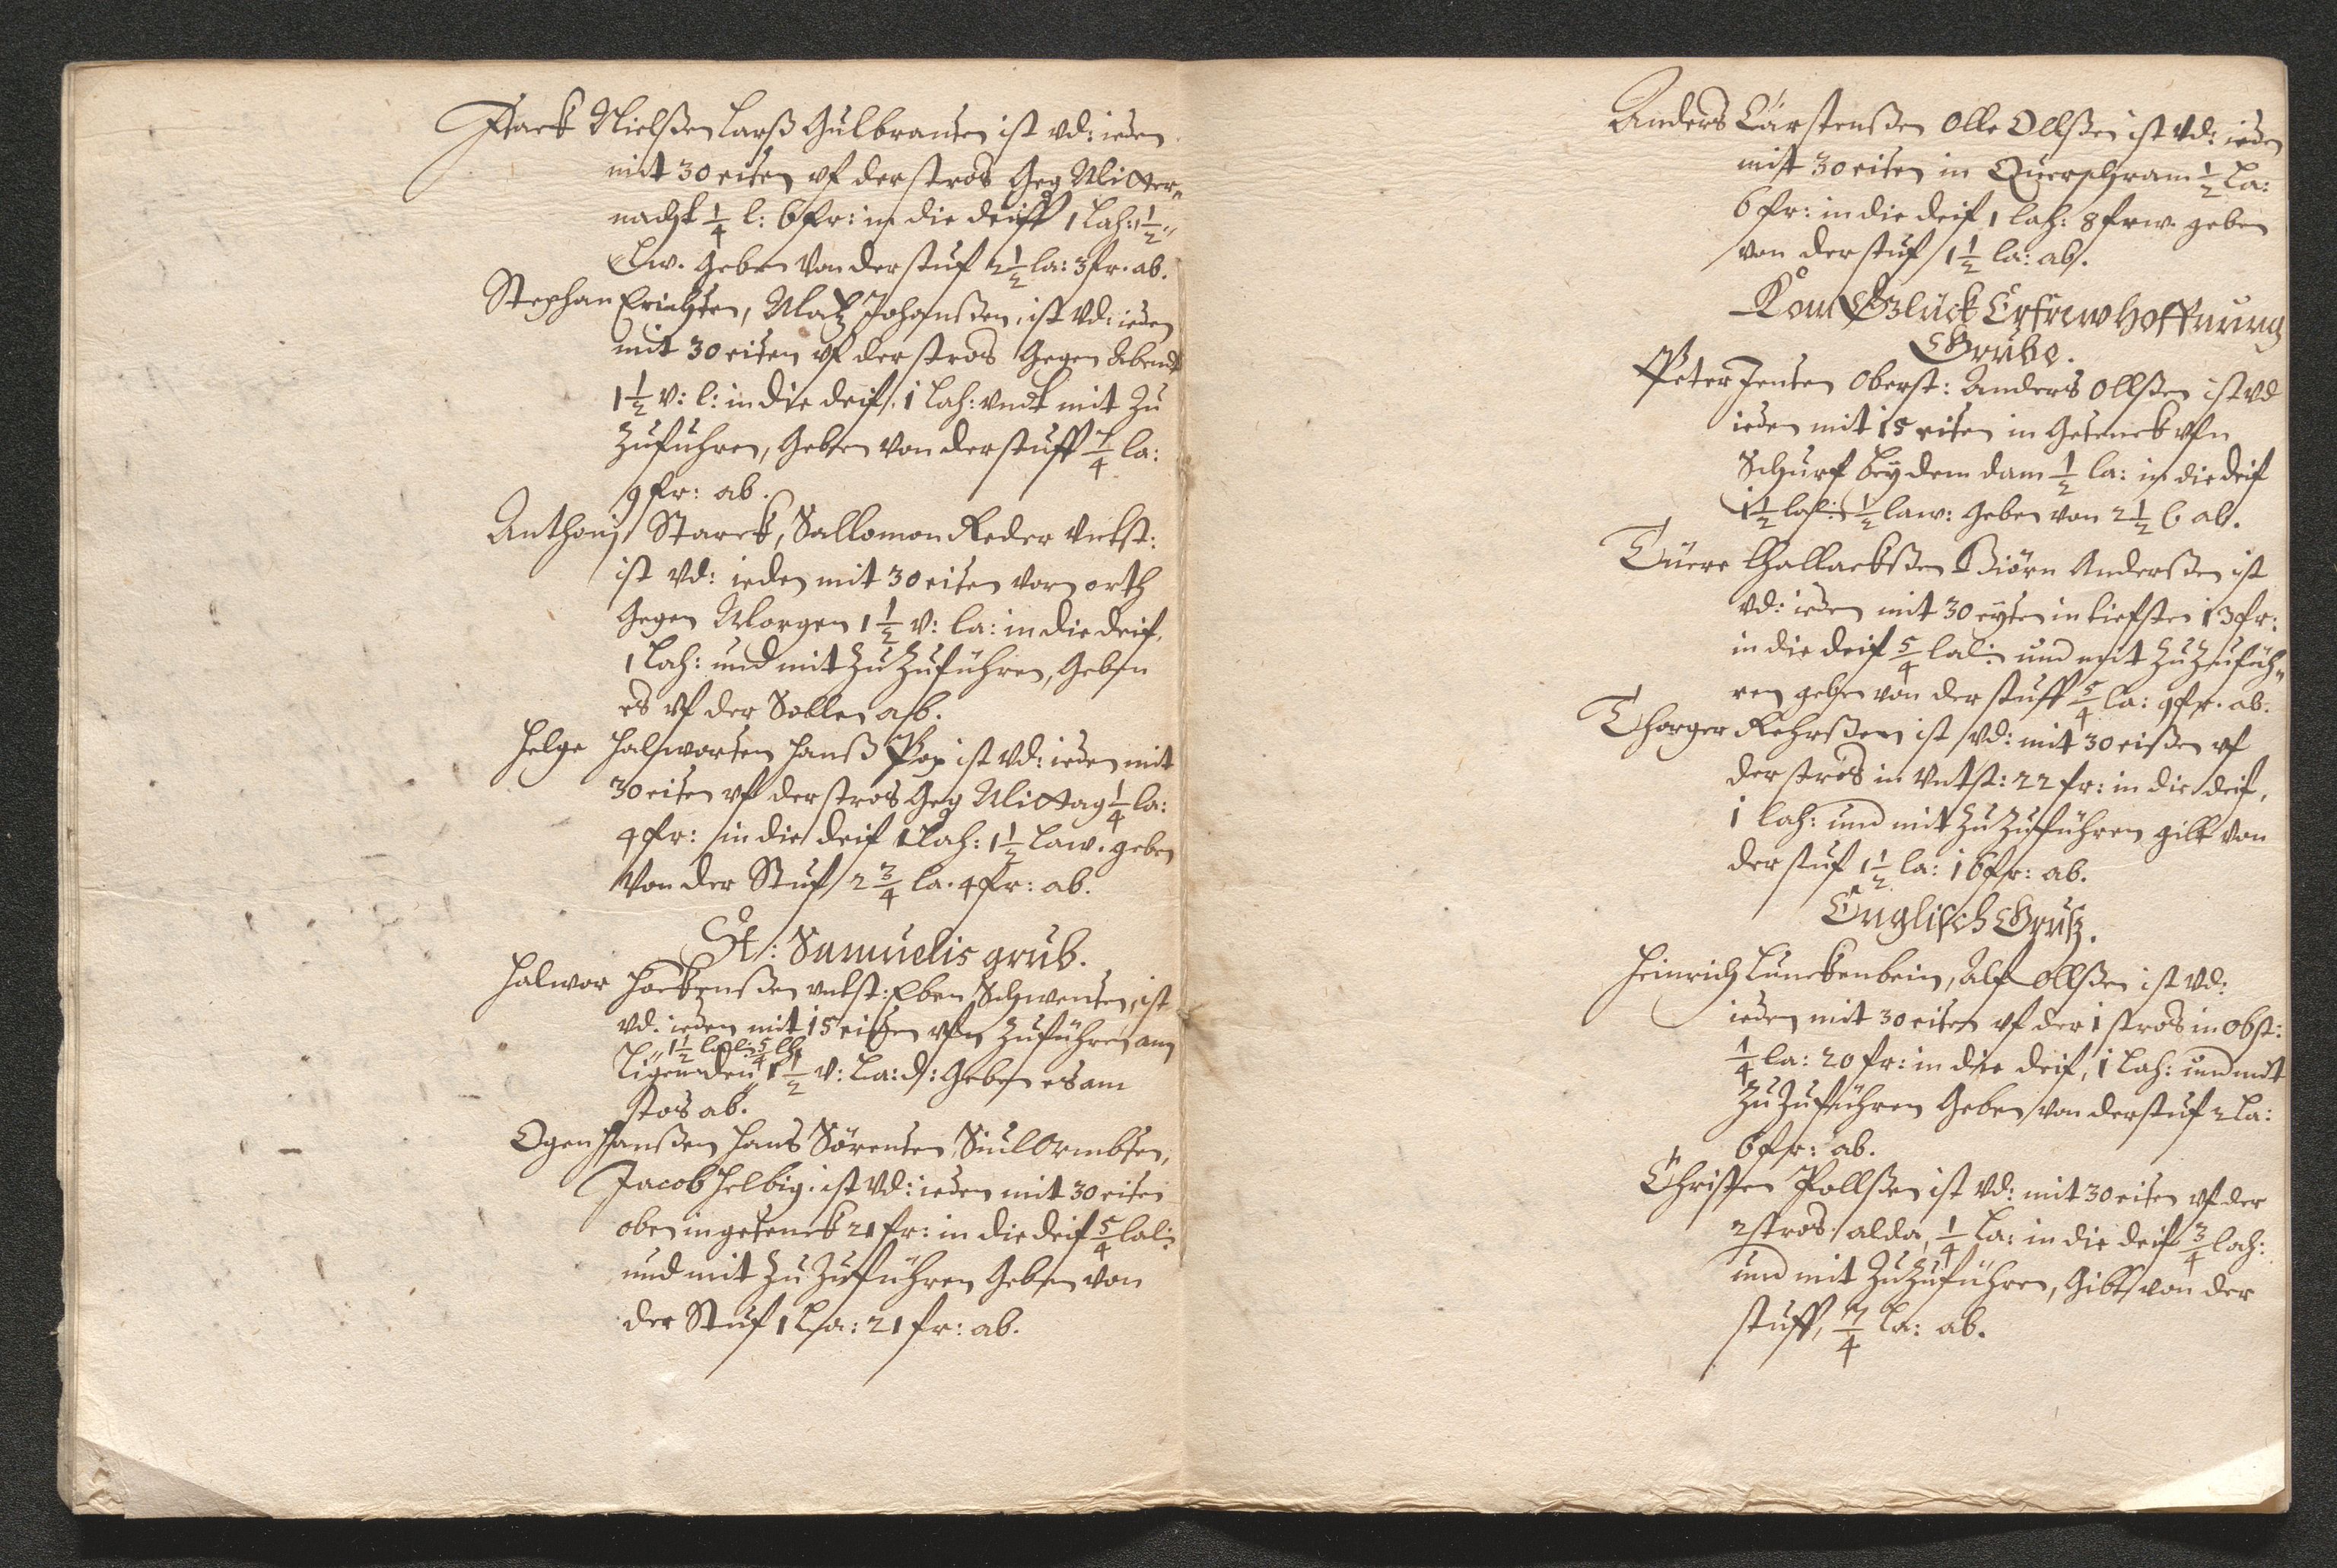 Isack Nielßen Larß Gulbransen ist vd: ieden
mit 30 eisen vf der stros Geg Mitter„
nacht 1/4 l: 6 fr: in die deiff 1 Lah: 1 1/2 „
Lw. Geben von der stuf 2 1/2 la: 3 fr. ab.
Stephan Erichsen, Matz Johanßen, ist vd: ieden
mit 30 eisen vf der stros Gegen Abendt
1 1/2 v: l: in die deif. 1 Lah: vndt mit Zu
Zuführen, Geben von der stuff 7/4 la:
9 fr: ab.
Anthonj Starck, Sallomon Reder vntst:
ist vd: ieden mit 30 eisen vorn orth
Gegen Morgen 1 1/2 v: la: in die deif.
1 Lah: und mit Zu Zuführen, Geben
es vf der Sollen ab.
Helge Halworsen Hanß Pop ist vd: ieden mit
30 eisen vf der stros Geg Mittag 1/4 la:
4 fr: in die deif 1 Lah: 1 1/2 Law. geben
von der Stuf 2 3/4 la. 4 fr: ab.
St: Samuelis grub.
Halwor Hockenßen vntst: Eben Schwensen, ist
vd. ieden mit 15 eisen vfn Zuführen am
„ 1 1/2 lah: 5/4
Ligenden 1 1/2 v: La: d: Geben es am
stos ab.
Ogen Hanßen Hans Sörensen, Siul Ormbsen,
Jacob Helbig. ist vd: ieden mit 30 eisen
oben in gesenck 21 fr: in die deif 5/4 lah:
und mit Zu Zuführen Geben von
der Stuf 1 La: 21 fr: ab.
Anders Carstenßen Olle Ollßen ist vd: ieden
mit 30 eisen in Querschram 1/2 La:
6 fr: in die deif 1 lah: 8 frw. geben
von der stuf 1 1/2 la: ab.
Kom Glück Erfrew Hoffnung
Grube.
Peter Jensen Oberst: Anders Ollßen ist vd
ieden mit 15 eisen in Gesenck vfn
Schurf bey dem dam 1/2 la: in die deif
1 1/2 lah: 1/2 law: Geben von 2 1/2 l ab.
Tuere Gallackßen Biörn Anderßen ist
vd: ieden mit 30 eysen in tiefsten 13 fr:
in die deif 5/4 lah: und mit Zu Zufüh„
ren geben von der stuff 5/4 la: 9 fr. ab.
Thorger Rehrßen ist vd: mit 30 eißen vf
der stros in vntst: 22 fr: in die deif,
1 lah: und mit Zu Zuführen gibt von
der stuf 1 1/2 la: 16 fr: ab.
Englisch Grus.
Heinrich Lunckenbein, Alf Ollßen ist vd:
ieden mit 30 eisen vf der 1 stros in Obst:
1/4 la: 20 fr: in die deif, 1 Lah: und mit
Zu Zuführen Geben von der stuf 2 La:
6 fr: ab.
Christen Pollßen ist vd: mit 30 eisen vf der
2 stros alda, 1/4 La: in die deif 3/4 lah:
und mit Zu Zuführen, Gibt von der
stuff, 7/4 la: ab.